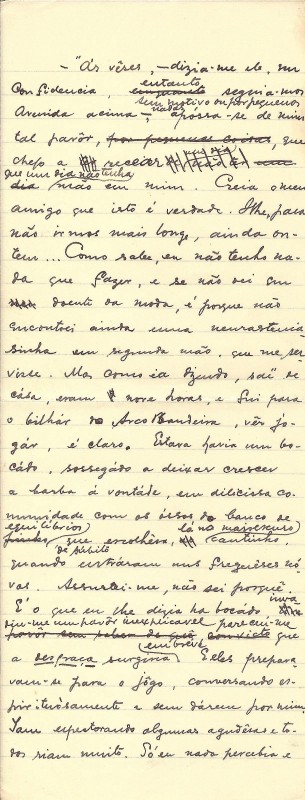 —"Ás vêses, — dizia-me ele, em
confidencia, enquanto entanto seguia-mos
Avenida acima —, sem motivo ou por pequenos nadas apossa-se de mim
tal pavôr, por pequenas coisas, que
chego a receiar
que um dia não tenha
dia mão em mim. Creia o meu
amigo que isto é verdade. Olhe, para
não irmos mais longe, ainda on-
tem... Como sabe, eu não tenho na-
da que fazer, e se não sei um
doente da moda, é porque não
encontrei ainda uma neurastenia-
sinha em segunda mão, que me ser-
visse. Mas como ia dizendo, saí de
cása, eram nove horas, e fui para
o bilhár do Arco Bandeira, vêr jo-
gár, é claro. Estava havia um bo-
cádo, sossegádo a deixar crescer
a barba á vontáde, em
munidade com os óssos do banco se
equilibrios) lá no mais escuso)
que escolhêra, cantinho,
de súbito
quando entráram uns freguêses nó-
vos. Assustei-me, não sei porquê.
É o que eu lhe dizia ha bocádo inva-
diu-me um pavôr inexplicavel pareceu-me
pavôr sem saber de quê convicto que
a desgraça surgiria (em breve) Eles prepara-
vam-se para o jôgo, conversando es-
pirituósamente e sem dárem por mim.
Iam espectorando algumas agudêsas e to-
dos riam muito. Só eu nada percebia e